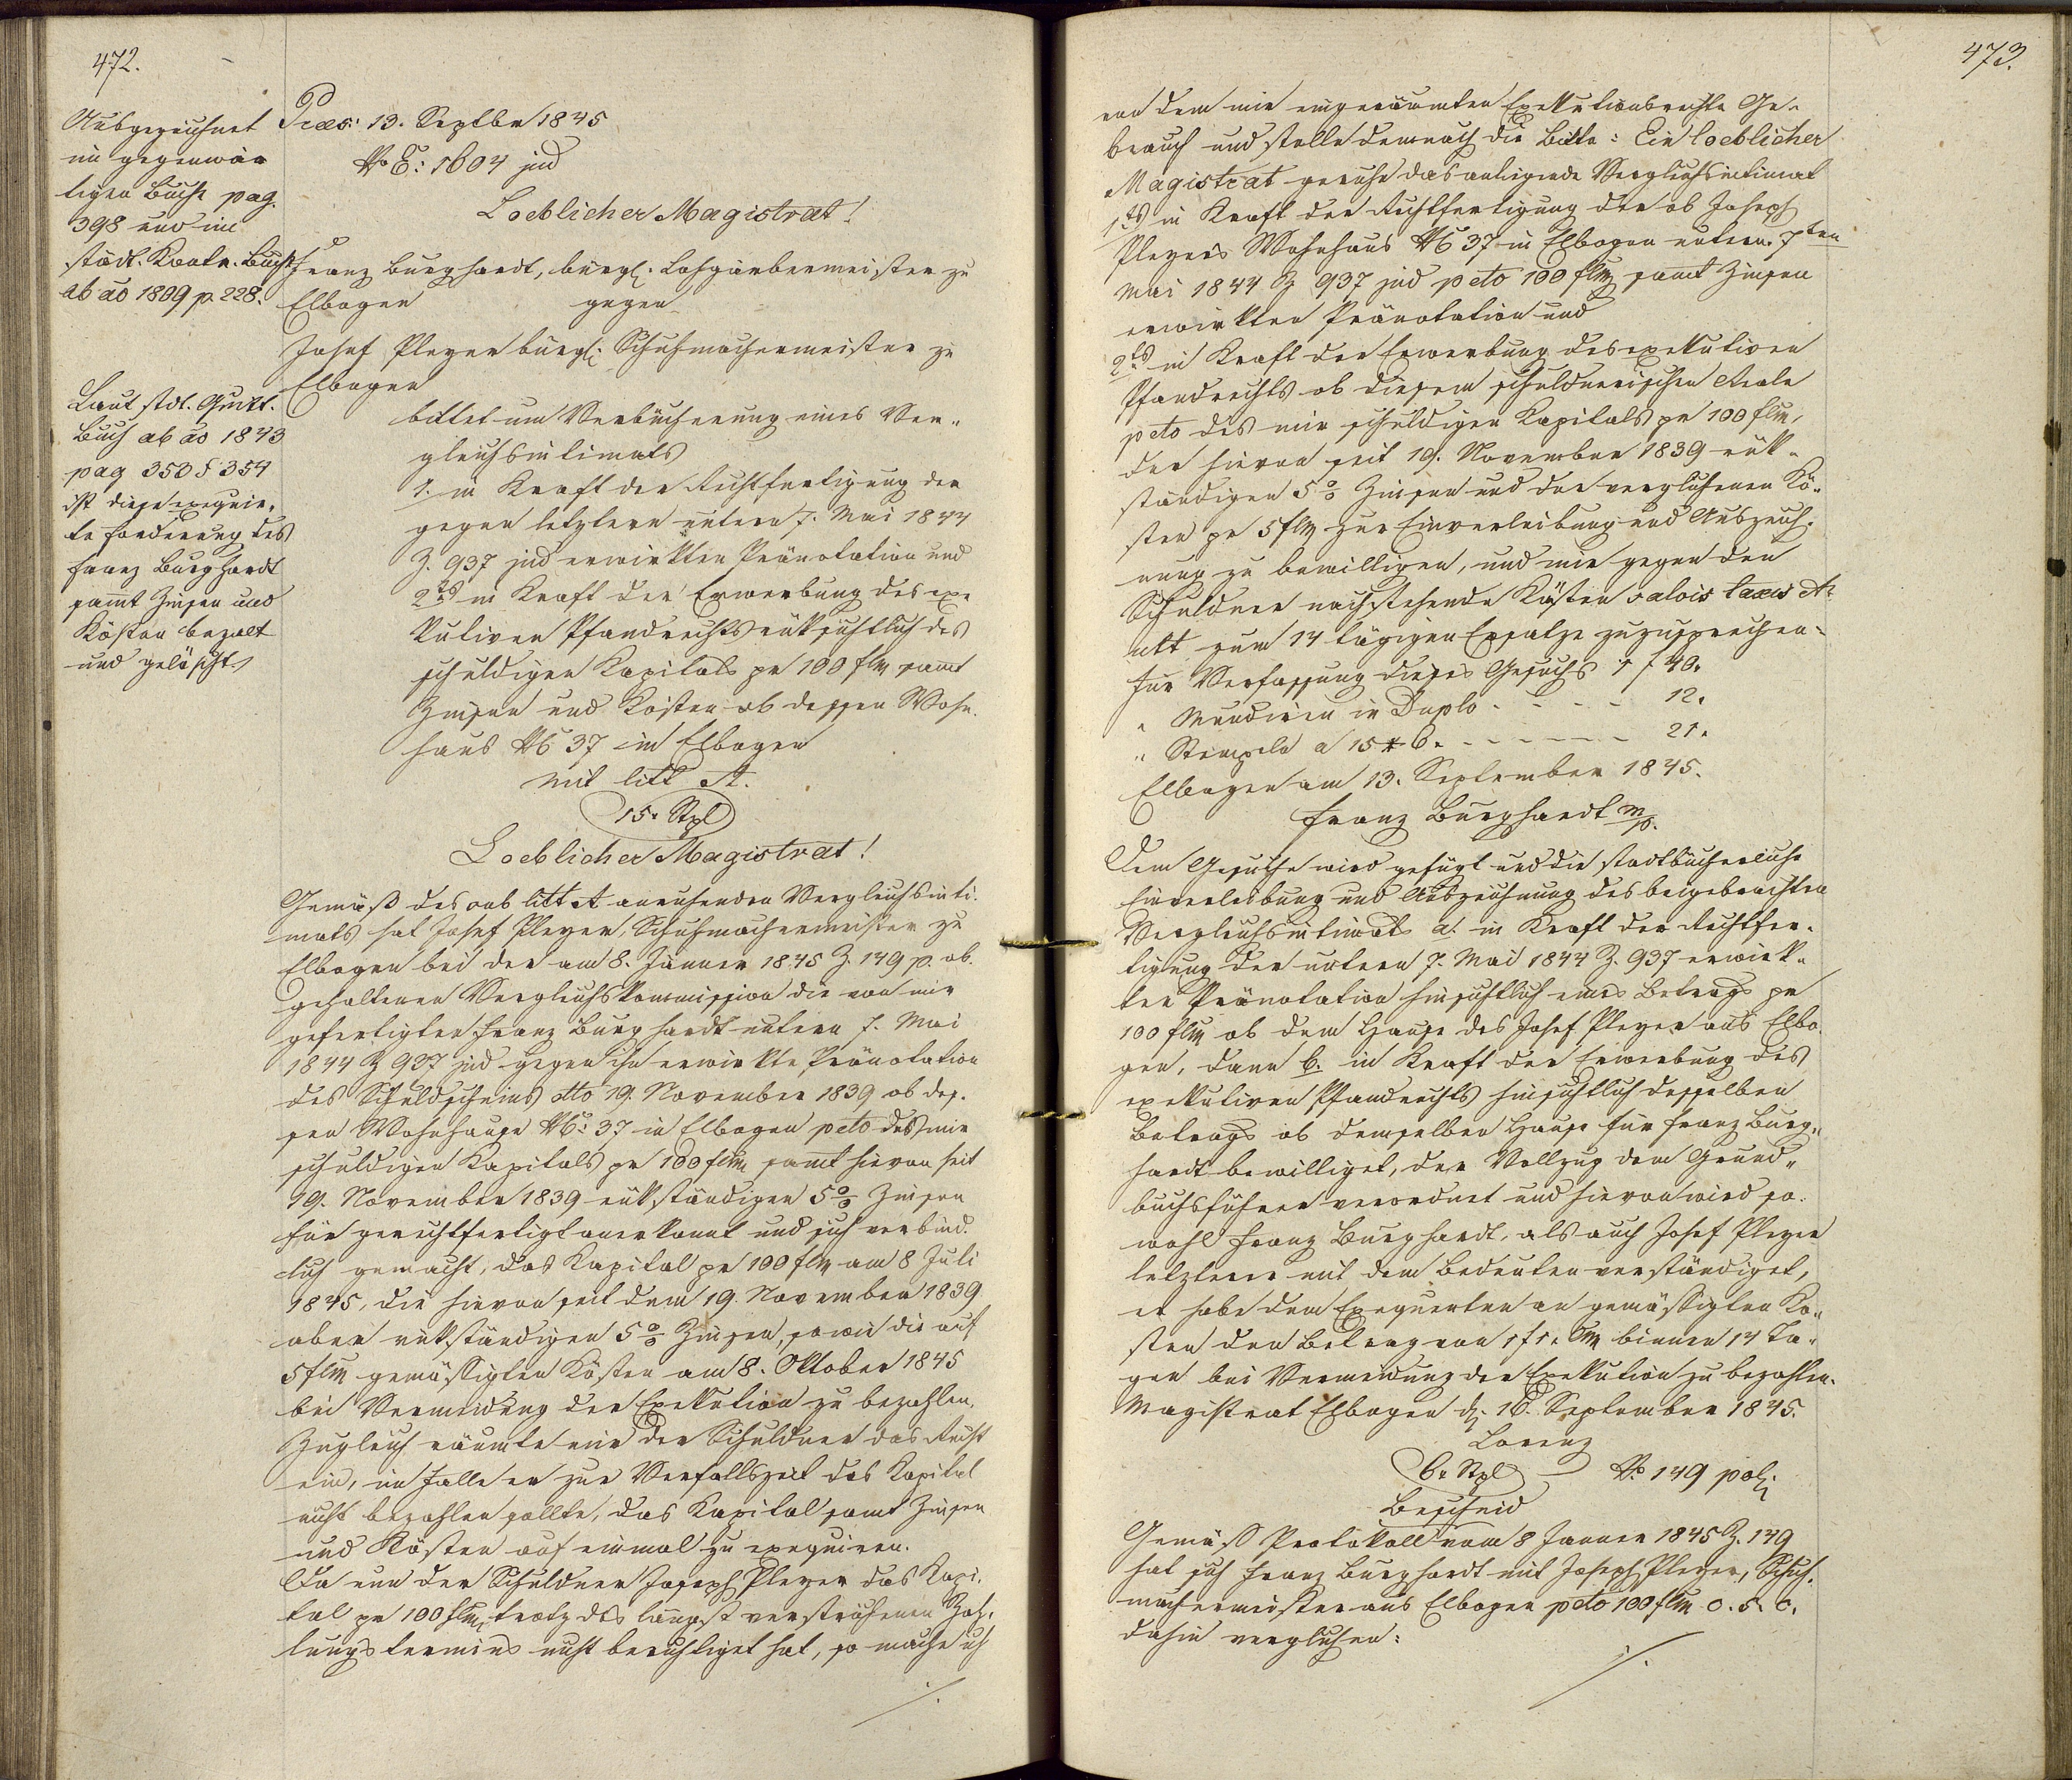 472.
Ausgezeichnet
im gegenwär
tigen Buche pag.
398 und im
städt. Kontr. Buche
ab ao 1809 p. 228.
Laut stdt. Quitt.
Buch ab ao 1843
pag 353 & 354
ist diese exequir„
te Forderung des
Franz Burghardt
sammt Zinsen und
Kösten bezalt
und gelöscht
Praes: 13. Septber 1845
No E: 1604 jud
Loeblicher Magistrat!
Franz Burghardt, bürgl. Lohgärbermeister zu
Elbogen gegen
Josef Pleyer bürgl. Schuhmachermeister zu
Elbogen
bittet um Verbücherung eines Ver„
gleichsintimats
1. in Kraft der Rechtfertigung der
gegen letztern unterm 7. Mai 1844
Z. 937 jud erwirkten Pränotation und
2tes in Kraft der Erwerbung des exe
kutiven Pfandrechts rüksichtlich des
schuldigen Kapitals pr 100 flm samt
Zinsen und Kösten ob dessen Wohn
haus No 37 in Elbogen
mit litt A.
15 Stpl
Loeblicher Magistrat!
Gemäß des sub litt A anruhenden Vergleichsinti„
mats hat Josef Pleyer, Schuhmachermeister zu
Elbogen bei der am 8. Jänner 1845 Z. 149 p. ab„
gehaltenen Vergleichskommission die von mir
gefertigten Franz Burghardt unterm 7. Mai
1844 Z 937 jud gegen ihn erwirkte Pränotation
des Schuldscheins dto 19. November 1839 ob des„
sen Wohnhause No: 37 in Elbogen peto des mir
schuldigen Kapitals pr 100 flm sammt hievon seit
19. November 1839 rükständigen 5% Zinsen
für gerechtfertigt anerkannt und sich verbind„
lich gemacht, das Kapital pr 100 flm am 8 Juli
1845, die hievon seit dem 19. November 1839
aber rükständigen 5% Zinsen, sowie die auf
5 flm gemässigten Kösten am 8. Oktober 1845
bei Vermeidung der Exekution zu bezahlen.
Zugleich räumte mir der Schuldner das Recht
ein, im Falle er zur Verfallszeit das Kapital
nicht bezahlen sollte, das Kapital samt Zinsen
und Kösten auf einmal zu exequiren.
Da nun der Schuldner Joseph Pleyer das Kapi„
tal pr 100 flm trotz des längst verstrichenen Zah„
lungstermins nicht berichtiget hat, so mache ich
./.
473.
von dem mir eingeräumten Exekutionsrechte Ge„
brauch und stelle demnach die Bitte: Ein loeblicher
Magistrat geruhe das anliegende Vergleichsintimat
1tes in Kraft der Rechtfertigung der ob Joseph
Pleyers Wohnhaus No 37 in Elbogen unterm 7ten
Mai 1844 Z 937 jud peto 100 flm samt Zinsen
erwirkten Pränotation und
2tes in Kraft der Erwerbung des exekutiven
Pfandrechts ob diesem schuldnerischen Reale
peto des mir schuldigen Kapitals pr 100 flm,
der hievon seit 19. November 1839 rük„
ständigen 5% Zinsen und der verglichenen Kö„
sten pr 5 flm zur Einverleibung und Auszeich„
nung zu bewilligen, und mir gegen den
Schuldner nachstehende Kösten salvis taxis et
zum 14 tägigen Ersatze zuzusprechen
für Verfassung dieses Gesuchs 1 f 40.
„ Mundiren in Duplo - - - - 12.
„ Stempeln a 15 + 6. - - - - - 21.
Elbogen am 13. September 1845.
Franz Burghardt m/p.
Dem Gesuche wird gefügt und die stadtbücherliche
Einverleibung und Auszeichnung des beigebrachten
Vergleichsintimats a. in Kraft der Rechtfer„
tigung der unterm 7. Mai 1844 Z. 937 erwirk„
ten Pränotation hinsichtlich eines Betrags pr
100 flm ob dem Hause des Josef Pleyer aus Elbo„
gen, dann b. in Kraft der Erwerbung des
exekutiven Pfandrechts hinsichtlich desselben
Betrags ob demselben Hause für Franz Burg„
hardt bewilliget, der Vollzug dem Grund„
buchsführer verordnet und hievon wird so„
wohl Franz Burghardt, als auch Josef Pleyer
letzterer mit dem Bedeuten verständiget,
er habe dem Exequenten an gemässigten Kö„
sten den Betrag von 1 f 1. Cm binnen 14 Ta„
gen bei Vermeidung der Exekution zu bezahlen.
Magistrat Elbogen d. 16. September 1845.
Lorenz
6. Stpl No 149 pol.
Bescheid
Gemäß Protokoll vom 8 Jänner 1845 Z. 149
hat sich Franz Burghardt mit Joseph Pleyer, Schuh„
machermeister aus Elbogen peto 100 flm c. s. c.
dahin verglichen:
./.